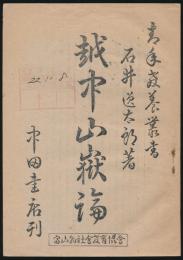 青年教養叢書
石井逸太郎著
越中山嶽論
中田書店刊
富山縣社會教育協會
22.10.8